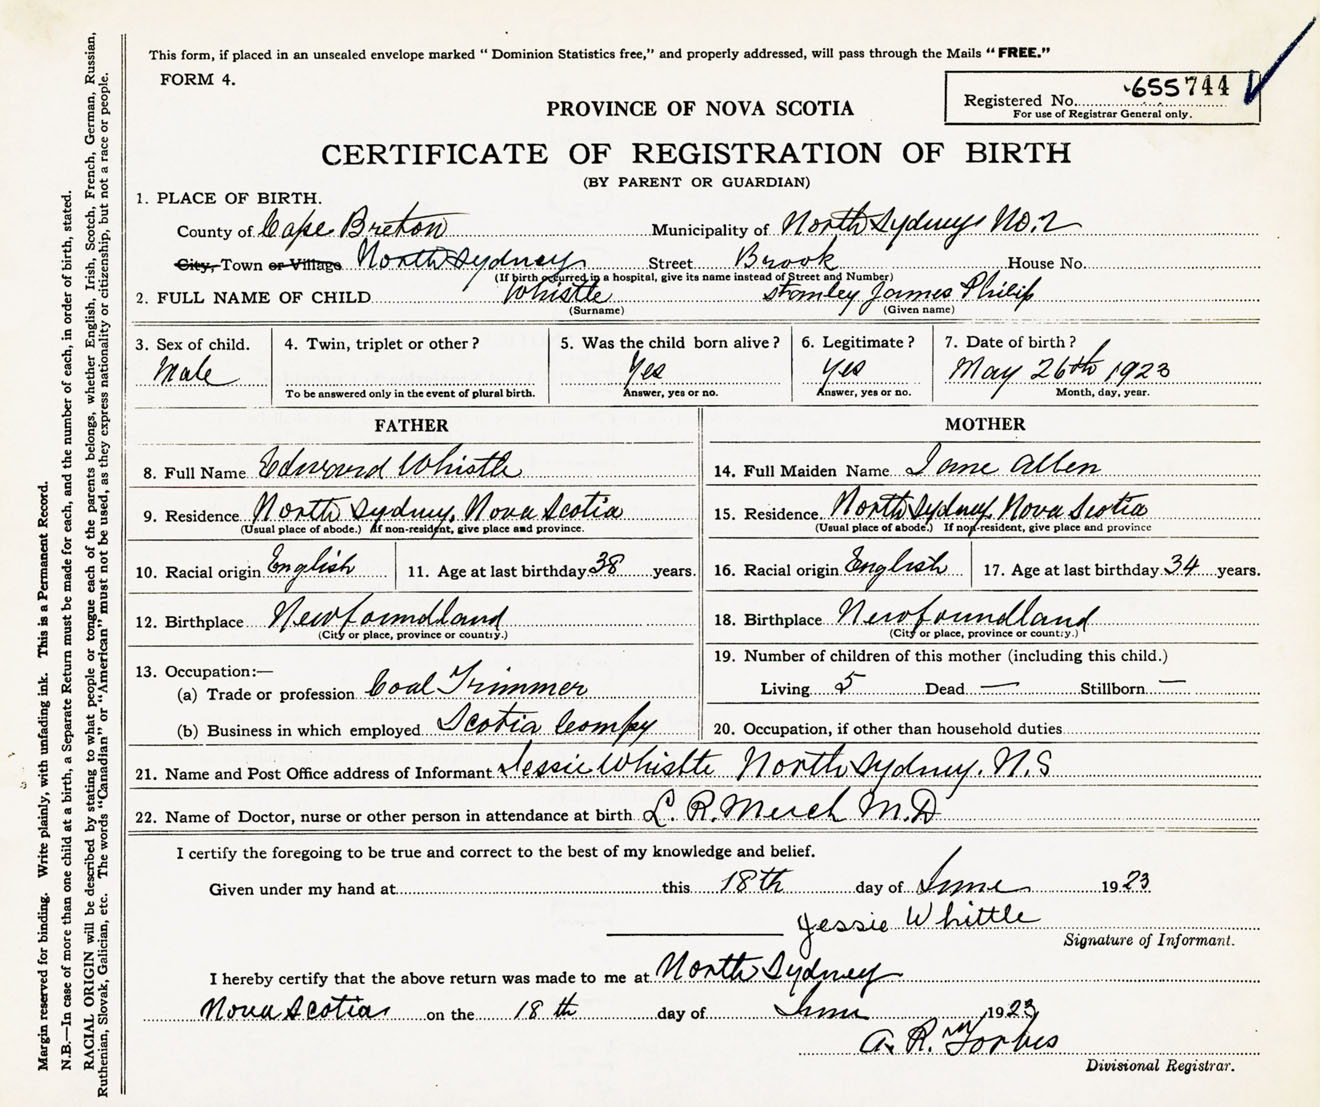 This form, if placed in an unsealed envelope marked “ Dominion Statistics free,” and properly addressed, will pass through the Mails “FREE.”
FORM 4.
Registered No. 655744
For use of Registrar General only.
PROVINCE OF NOVA SCOTIA
CERTIFICATE OF REGISTRATION OF BIRTH
(BY PARENT OR GUARDIAN)
1. PLACE OF BIRTH.
County of Cape Breton Municipality of North Sydney No. 2
City, Town or Village North Sydney Street Brook House No.
(If birth occurred in a hospital, give its name instead of Street and Number)
2. FULL NAME OF CHILD Whistle Stanley James Philip
(Surname) (Given name)
3. Sex of child. 4. Twin, triplet or other? 5. Was the child born alive? 6. Legitimate? 7. Date of birth?
Male Yes Yes May 26th 1923
To be answered only in the event of plural birth. Answer, yes or no. Answer, yes or no. Month, day, year.
FATHER MOTHER
8. Full Name Edward Whistle 14. Full Maiden Name Jane Allen
9. Residence North Sydney, Nova Scotia 15. Residence North Sydney Nova Scotia
(Usual place of abode.) If non-resident, give place and province. (Usual place of abode.) If non-resident, give place and province
10. Racial origin English 11. Age at last birthday 38 years. 16. Racial origin English 17. Age at last birthday 34 years.
12. Birthplace Newfoundland 18. Birthplace Newfoundland
(City or place, province or country.) (City or place, province or country.)
13. Occupation:— 19. Number of children of this mother (including this child.)
(a) Trade or profession Coal Trimmer Living 5 Dead — Stillborn —
(b) Business in which employed Scotia Compy 20. Occupation, if other than household duties
21. Name and Post Office address of Informant Jessie Whistle North Sydney. N.S
22. Name of Doctor, nurse or other person in attendance at birth L. R. Meech M.D
I certify the foregoing to be true and correct to the best of my knowledge and belief.
Given under my hand at this 18th day of June 1923
Jessie Whittle
Signature of Informant.
I hereby certify that the above return was made to me at North Sydney
Nova Scotia on the 18th day of June 1923
A. R. Forbes
Divisional Registrar.
Margin reserved for binding. Write plainly, with unfading ink. This is a Permanent Record.
N.B.—In case of more than one child at a birth, a Separate Return must be made for each, and the number of each, in order of birth, stated.
RACIAL ORIGIN will be described by stating to what people or tongue each of the parents belongs, whether English, Irish, Scotch, French, German, Russian,
Ruthenian, Slovak, Galician, etc. The words “Canadian” or “American” must not be used, as they express nationality or citizenship, but not a race or people.